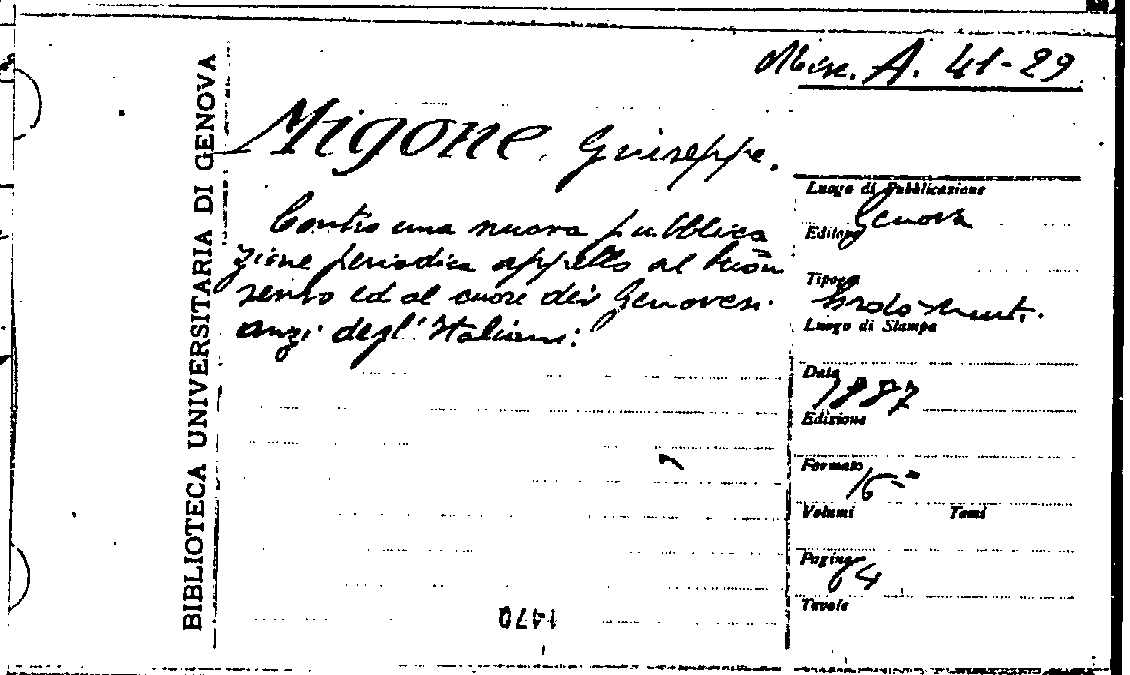 Misc. A. 41-29
BIBLIOTECA UNIVERSITARIA DI GENOVA
Migone, Giuseppe.
Contro una nuova pubblica
zione periodica appello al buon
senso ed al cuore dei Genovesi
anzi degl' Italiani.
Luogo di Pubblicazione
Genova
Editore
Tipogr.
Luogo di Stampa
Data
1887
Edizione
Formato
16º
Volumi Tomi
Pagine
64
Tavole
1470